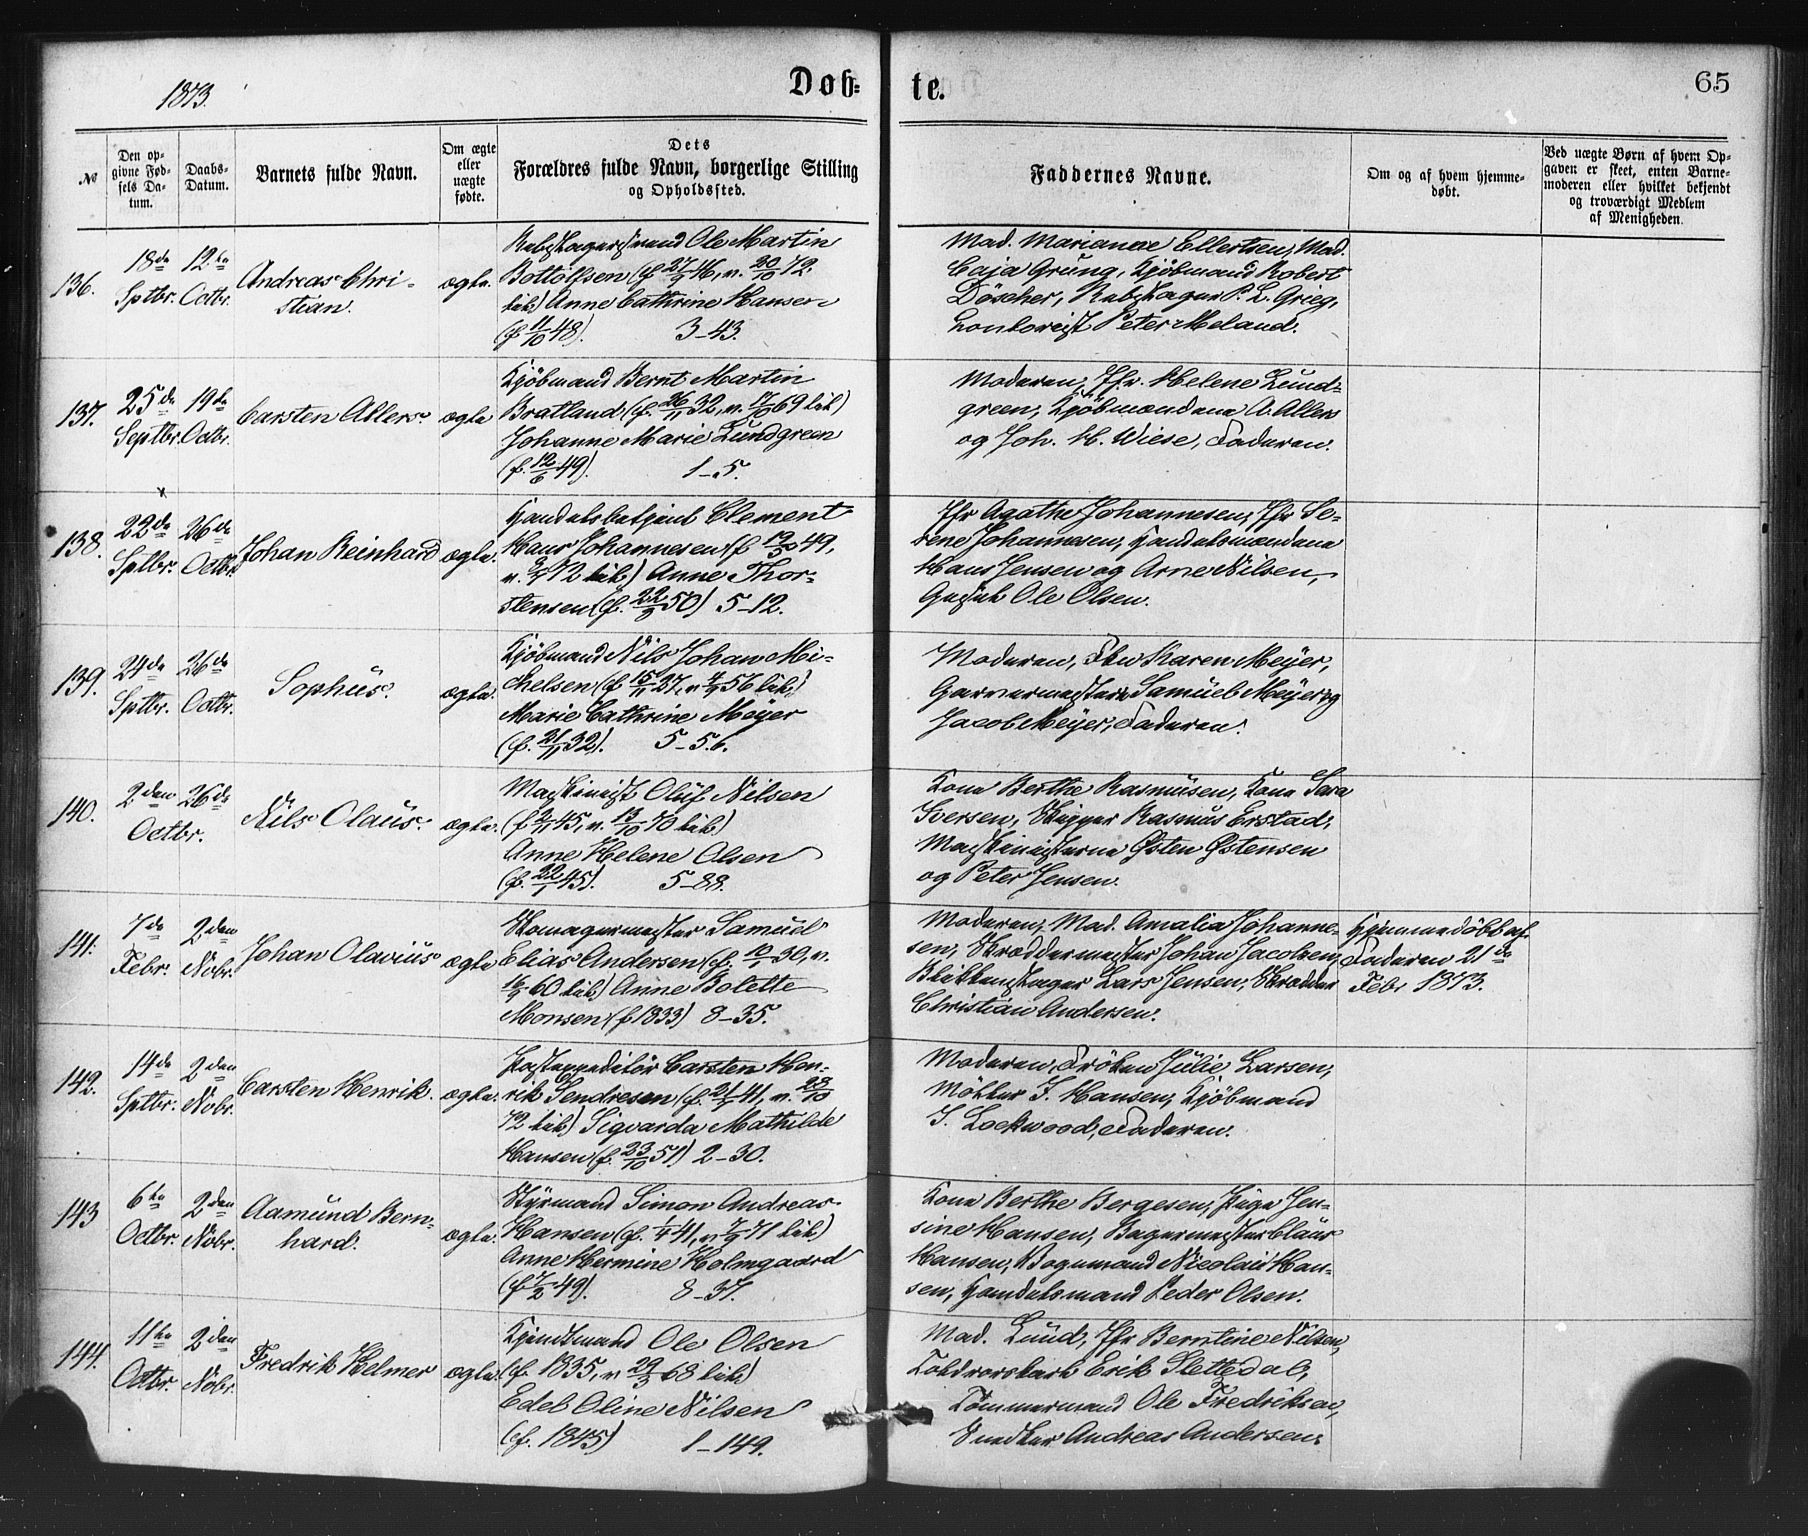 1873.
Døb-
te.
65
№
Den op-
givne Fød-
sels Da-
tum.
Daabs-
Datum.
Barnets fulde Navn.
Om ægte
eller
uægte
fødte.
Dets
Forældres fulde Navn, borgerlige Stilling
og Opholdssted.
Faddernes Navne.
Om og af hvem hjemme-
døbt.
Ved uægte Børn af hvem Op-
gaven er skeet, enten Barne-
moderen eller hvilket bekjendt
og troværdigt Medlem
af Menigheden.
136.
18de
Sptbr.
12te
Octbr.
Andreas Chri-
stian.
ægte.
Rebslagersvend Ole Martin
Bottolfsen (f. 27/9 46, v. 20/10 72.
lib.) Anne Cathrine Hansen
(f. 11/10 48). 3-43.
Mad. Marianne Ellertsen, Mad.
Caja Grung, Kjøbmand Robert
Döscher, Rebslager P. L. Grieg,
Contorist Peter Meland.
137.
25de
Septbr.
19de
Octbr.
Carsten Allers.
ægte
Kjøbmand Bernt Martin
Bratland (f. 26/11 32, v. 17/10 69 lib)
Johanne Marie Lundgreen
(f. 12/6 49). 1-5.
Moderen, Jfr. Helene Lund-
green, Kjøbmændene A. Allers
og Joh. H. Wiese, Faderen.
138.
22de
Sptbr.
26de
Octbr.
Johan Reinhard
ægte.
Handelsbetjent Clement
Hans Johannesen (f. 19/5 49,
v. 72 lib.) Anne Thor-
stensen (f. 22/2 50) 5-12.
Jfr Agathe Johannesen, Jfr Se-
rene Johannesen, Handelsmændene
Hans Jensen og Arne Nilsen,
Ole Olsen.
139.
24de
Sptbr.
26de
Octbr.
Sophus.
ægte.
Kjøbmand Nils Johan Mi-
chelsen (f. 15/11 27, v. 4/9 56 lib.)
Marie Cathrine Meyer
(f. 21/11 32). 5-5b.
Moderen, Karen Meyer,
Garvermestere Samuel Meyer og
Jacob Meyer, Faderen.
140.
2den
Octbr.
26de
Nils Olaus.
ægte.
Maskinist Oluf Nilsen
(f. 2/11 45, v. 13/10 70 lib)
Anne Helene Olsen
(f. 22/1 45). 5-88.
Kone Berthe Rasmusen, Kone Sara
Iversen, Skipper Rasmus Erstad,
Maskinisterne Østen Østensen
og Peter Jensen.
141.
7de
Febr.
2den
Nobr.
Johan Olavius
ægte
Skomagermester Samuel
Elias Andersen (f. 10/1 30, v.
60 lib.) Anne Bolette
Monsen (f. 1833) 8-35.
Moderen, Mad. Amalia Johanne-
sen, Skræddermester Johan Jacobsen,
Blikkenslager Lars Jensen, Skrædder
Christian Andersen.
Hjemmedøbt af
Faderen 21de
Febr 1873.
142.
14de
Sptbr.
2den
Nobr.
Carsten Henrik.
ægte.
Postexpeditør Carsten Hen-
rik Sendresen (f. 21/9 41, v. 28/10
72 lib) Sigvarda Mathilde
Hansen (f. 23/10 51) 2-30.
Moderen, Frøken Julie Larsen,
Møller J. Hansen, Kjøbmand
J. Lockwood, Faderen.
143
6te
Octbr.
2den
Nobr.
Aamund Bern-
hard.
ægte.
Styrmand Simon Andreas
Hansen (f. 1/4 41, v. 7/9 71 lib.)
Anne Hermine Holmgaard
(f. 7/2 49). 8-37.
Kone Berthe Bergesen, Pige Jen-
sine Hansen, Bagermester Claus
Hansen, Vognmand Nicolai Han-
sen, Handelsmand Peder Olsen.
144.
11te
Octbr.
2den
Nobr.
Fredrik Helmer
ægte
Ole Olsen
(f. 1835, v. 29/3 68 lib)
Edel Oline Nilsen
(f. 1845) 1-149.
Mad. Lund, Jfr Berntine Nilsen,
Erik Slettedal,
Tømmermand Ole Fredriksen,
Snedker Andreas Andersen.